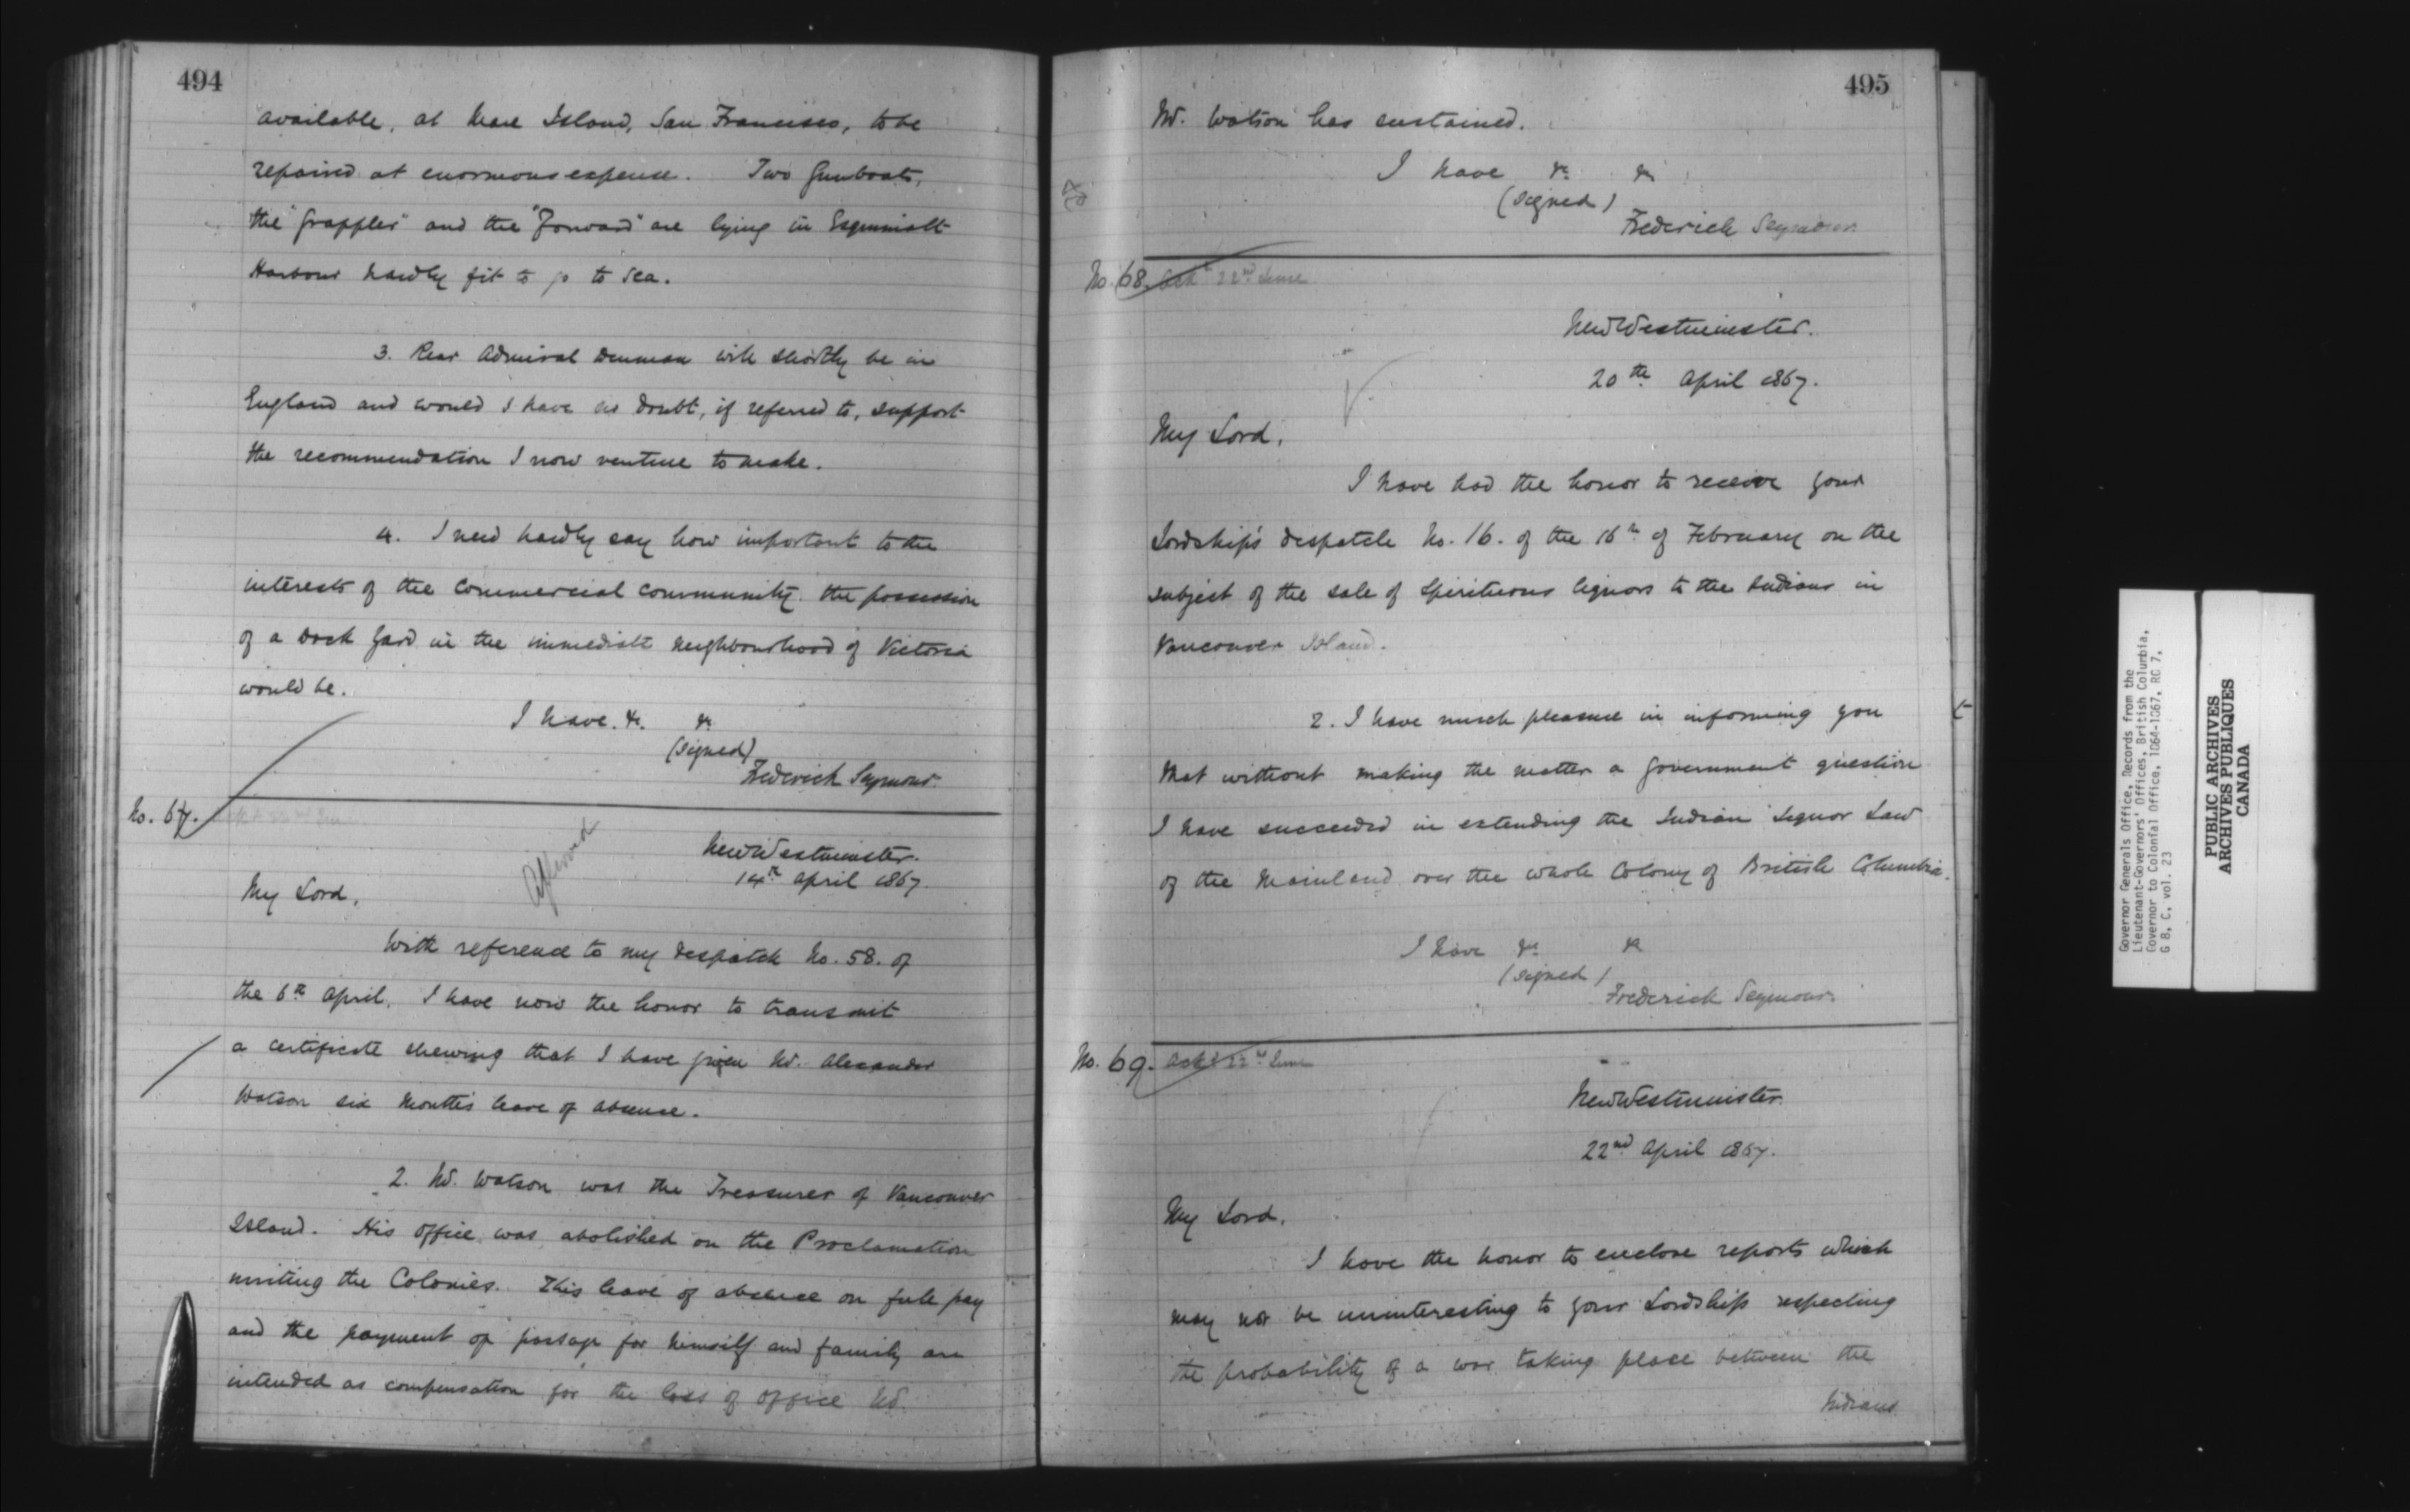 494
available, at Mare Island, San Francisco, to be
repaired at enormous expense. Two Gunboats,
the "Grappler" and the "Forward" are lying in Esquimalt
Harbour hardly fit to go to sea.
3. Rear Admiral Denman will shortly be in
England and would I have no doubt, if referred to, support
the recommendation I now venture to make.
4. I need hardly say how important to the
interests of the Commercial community the possession
of a Dock Yard in the immediate neighbourhood of Victoria
would be.
I have &c. &c
(signed)
Frederick Seymour.
No. 67.
New Westminster.
14th April 1867.
My Lord,
With reference to my despatch No. 58. of
the 6th April, I have now the honor to transmit
a certificate shewing that I have given Mr. Alexander
Watson six months leave of absence.
2. Mr. Watson was the Treasurer of Vancouver
Island. His office was abolished on the Proclamation
uniting the Colonies. This leave of absence on full pay
and the payment of passage for himself and family are
intended as compensation for the loss of office Mr.
495
Mr. Watson has sustained.
I have &c &c
(signed)
Frederick Seymour
No. 68. Ackd 22nd June
New Westminster.
20th April 1867.
My Lord,
I have had the honor to receive your
Lordship's despatch No. 16. of the 16th of February on the
subject of the sale of Spirituous liquors to the Indians in
Vancouver Island.
2. I have much pleasure in informing you
that without making the matter a Government question
I have succeeded in extending the Indian Liquor Law
of the Mainland over the whole Colony of British Columbia.
I have &c &c
(signed)
Frederick Seymour.
No. 69. Ackd 22nd June
New Westminster.
22nd April 1867.
My Lord,
I have the honor to enclose reports which
may not be uninteresting to your Lordship respecting
the probability of a war taking place between the
Indians
Governor Generals Office, Records from the
Lieutenant-Governors' Offices, British Columbia,
Governor to Colonial Office, 1864-1867, RG 7,
G 8, C, vol. 23
PUBLIC ARCHIVES
ARCHIVES PUBLIQUES
CANADA